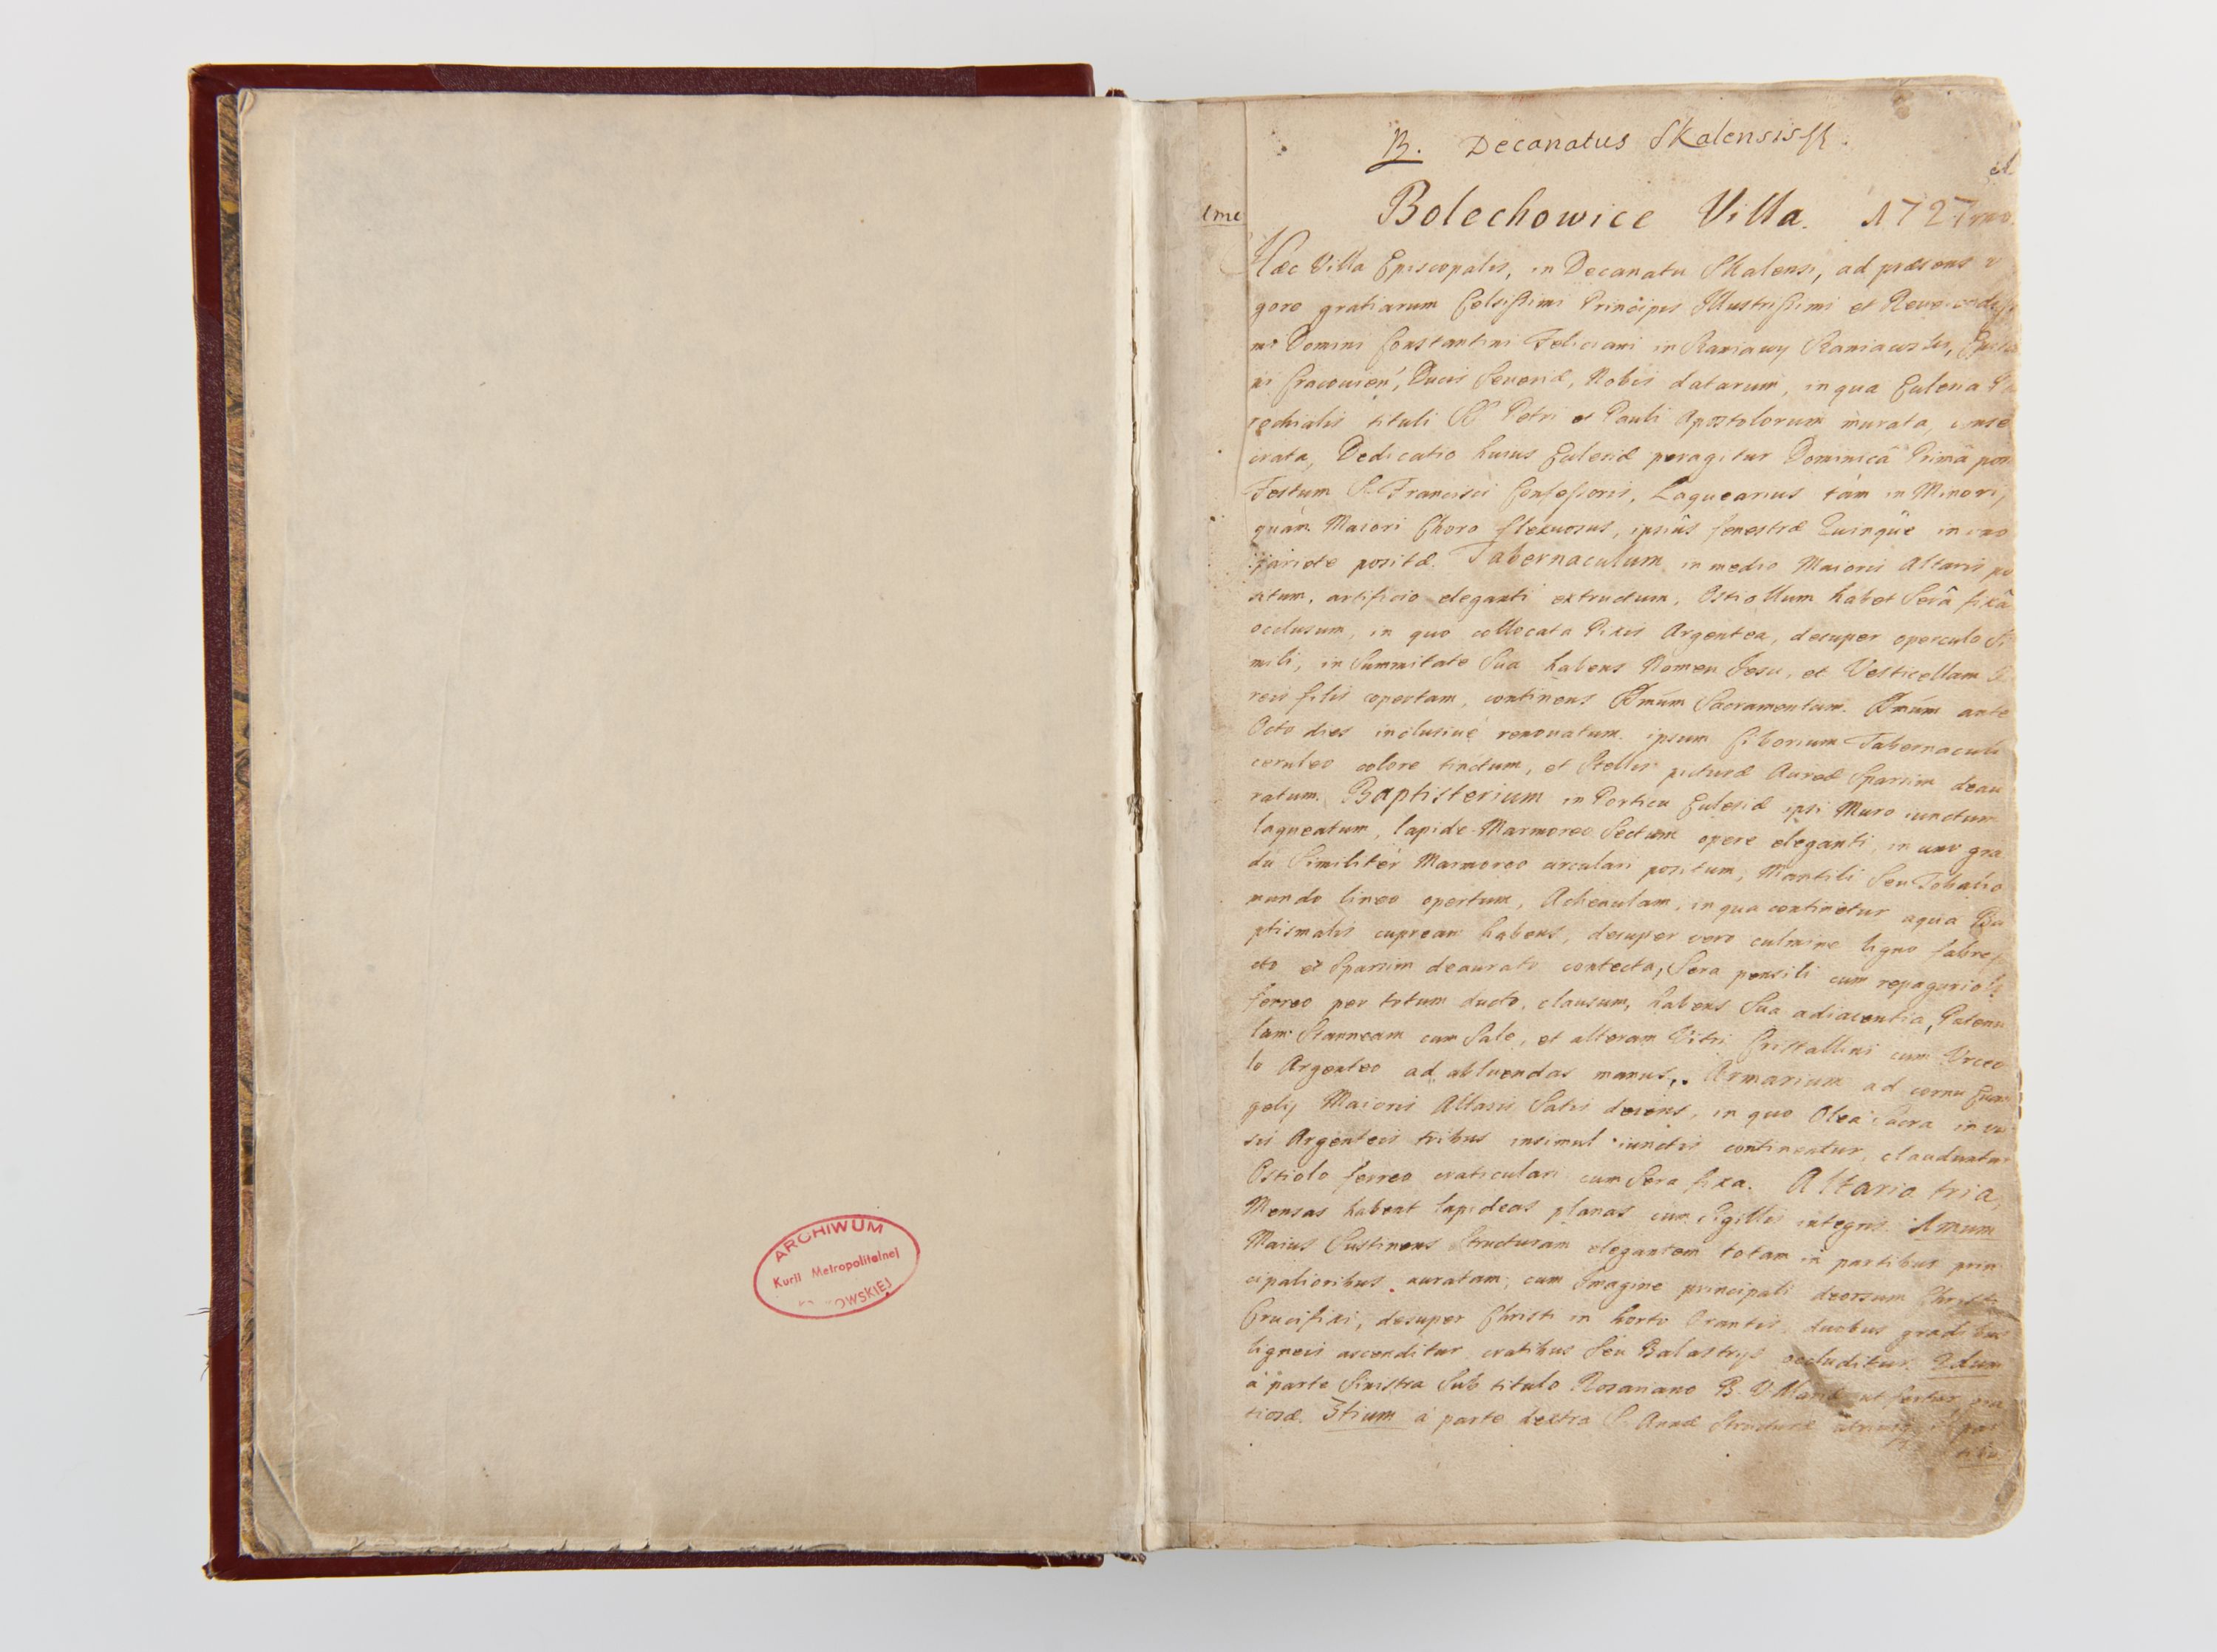 ARCHIWUM
Kurii Metropolitalnej
OWSKIEJ
B. Decanatus Skalensis
Bolechowice Villa. 1727mo
Hæc Villa Episcopalis, in Decanatu Skalensi, ad præsens vi
gore gratiarum Celsissimi Principis Illustrissimi et Reverendissi
mi Domini Constantini Feliciani in Szaniawy Szaniawski, Episco
pi Cracovien, Ducis Severiæ, Nobis datarum, in qua Ecclesia Pa
rochialis tituli SS Petri et Pauli Apostolorum murata, conse
crata, Dedicatio huius Ecclesiæ peragitur Dominicâ Primâ post
Festum S. Francisci Confessoris, Laquearius tàm in Minori,
quàm Maiori Choro flexuosus, ipsius fenestræ Quinque in uno
pariete positæ. Tabernaculum in medio Maioris Altaris po
situm, artificio eleganti extructum, Ostiollum habet Serâ fixâ
occlusum, in quo collocata Pixis Argentea, desuper operculo Si
mili, in Summitate Sua habens Nomen Jesu, et Vesticellam
reis filis copertam, continens Smum Sacramentum. Smum ante
Octo dies inclusivè renovatum. ipsum Ciborium Tabernaculi
ceruleo colore tinctum, et Stellis picturæ Aureæ Sparsim deau
ratum. Baptisterium in Porticu Ecclesiæ ipsi Muro iunctum
laqueatum, lapide Marmoreo Sectum opere eleganti, in uno gra
du Similiter Marmoreo circulari positum, Mantili Seu Tobalio
mundo lineo opertum, Ahenulam, in qua continetur aqua Ba
ptismalis cupream habens, desuper vero culmine ligno fabrefa
cto et Sparsim deaurato contecta, Sera pensili cum repagariolo
ferreo per totum ducto, clausum, habens Sua adiacentia, Patenu
lam Stanneam cum Sale, et alteram Vitri Cristallini cum Urceo
lo Argenteo ad abluendas manus. Armarium ad cornu Evan
gelij Maioris Altaris Satis decens, in quo Olea Sacra in va
sis Argenteis tribus insimul iunctis continentur, clauduntur
Ostiolo ferreo craticulari cum Sera fixa. Altaria tria,
Mensas habent lapideas planas cum Sigillis integris. 1mum
Maius Sustinens Structuram elegantem totam in partibus prin
cipalioribus auratam, cum Imagine principali deorsum Christi
Crucifixi, desuper Christi in horto Orantis, duobus gradibus
ligneis ascenditur cratibus Seu Balastrys occluditur. 2dum
à parte Sinistra Sub titulo Rosariano B. V. Mariæ ut fertur gra
tiosæ. 3tium à parte dextra S. Annæ Structuræ